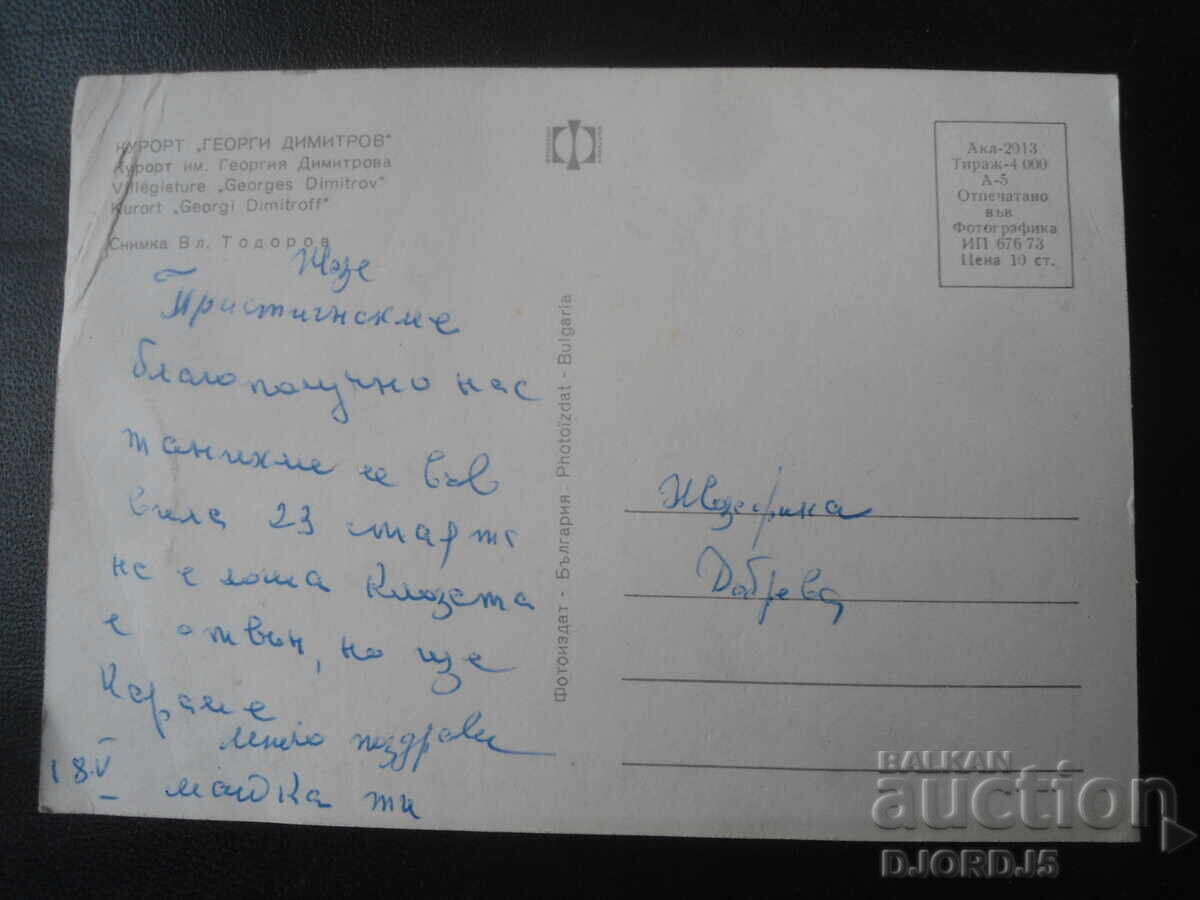 КУРОРТ „ГЕОРГИ ДИМИТРОВ"
Курорт им. Георгия Димитрова
Villégisture „Georges Dimitrov"
Kurort „Georgi Dimitroff"
Снимка Вл. Тодоров
Жозе
Пристигнахме
благополучно нас
танихме се във
вила 23 старта
не е лоша Клозета
е отвън, но ще
Караме
Много поздрави
18.V майка ти
Фотоиздат - България - Photoizdat - Bulgaria
Акл-2013
Тираж-4 000
А-5
Отпечатано
във
Фотографика
ИП 676 73
Цена 10 ст.
Жозефина
Добрева
BALKAN
auction
DJORDJ5